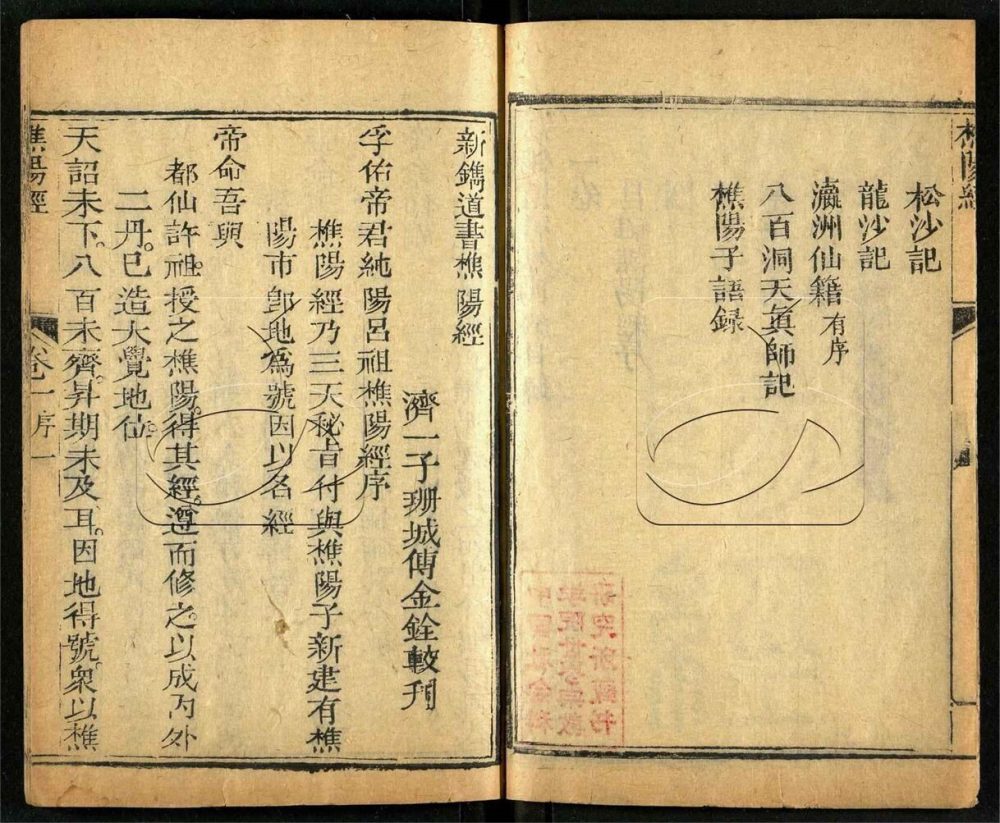 樵陽經
松沙記
龍沙記
瀛洲仙籍有序
八百洞天眞師記
樵陽子語録
新鐫道書樵陽經
濟一子珊城傅金銓較刊
孚佑帝君純陽呂祖樵陽經序
樵陽經乃三天秘旨付與樵陽子新建有樵
陽市卽地爲號因以名經
帝命吾與
都仙許祖授之樵陽得其經遵而修之以成內外
二丹已造大覺地位
天詔未下八百未齊昇期未及耳因地得號衆以樵
樵陽經 卷一序 一